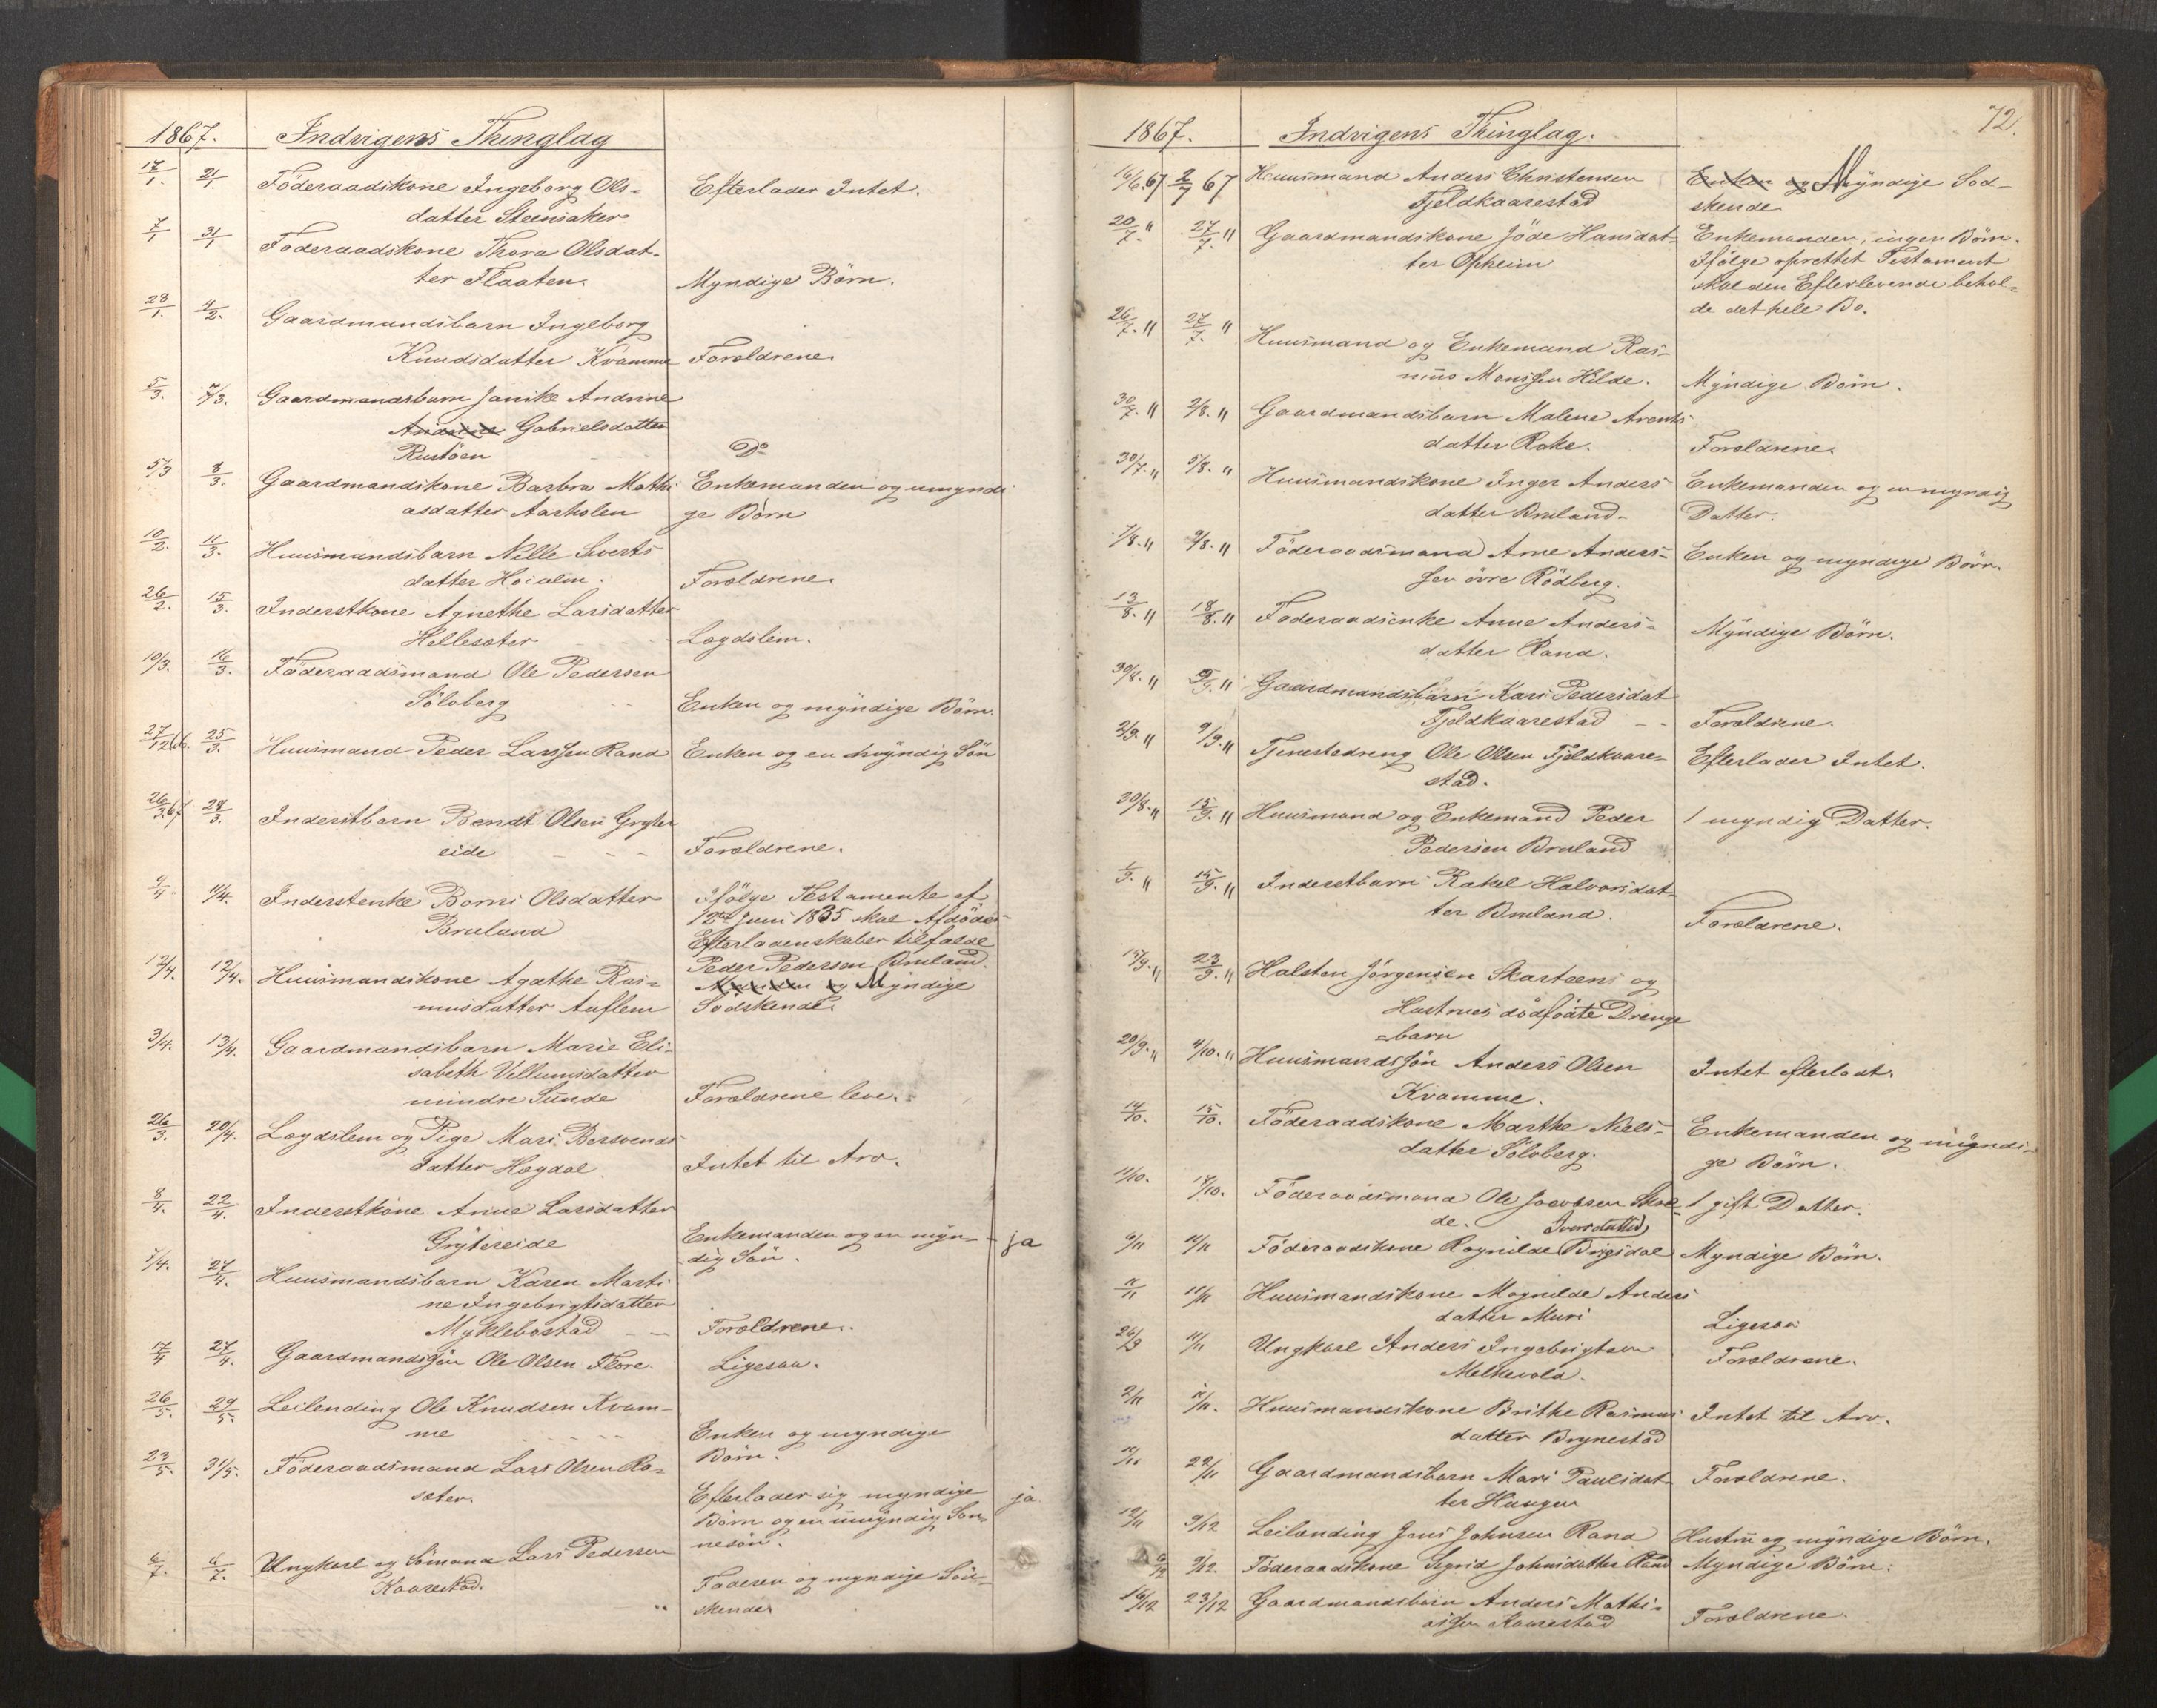 1867. Indvigens Thinglag
17/1. 21/1. Föderaadskone Ingeborg Ols- Efterlader Intet.
datter Steensaker
7/1 31/1 Föderaadskone Thora Olsdat-
ter Flaaten. Myndige Börn.
28/1. 4/2. Gaardmandsbarn Ingeborg
Knudsdatter Kvamme Forældrene.
5/3. 7/3. Gaardmandsbarn Janike Andrine
Andrine Gabrielsdatter
Rustöen Do
5/3 8/3. Gaardmandskone Barbra Mathi Enkemanden og umyndi
asdatter Aarholen ge Börn
10/2. 11/3. Huusmandsbarn Nille Siverts
datter Forældrene
26/2. 15/3. Inderstkone Agnethe Larsdatter
Hellesæter Lægdslem.
10/3. 16/3. Föderaadsmand Ole Pedersen
Söloberg Enken og myndige Börn.
27/12 66. 25/3. Huusmand Peder Larssen Rand Enken og en myndig Sön
26/3. 67 28/3. Inderstbarn Bendt Olsen Gryter
eide Forældrene.
9/4 11/4. Inderstenke Borni Olsdatter Ifölge Testamente af
Bruland 12te Juni 1835 skal Afdödes
Efterladenskaber tilfalde
Peder Pedersen Bruland.
12/4. 12/4. Huusmandskone Agathe Ras- Manden og Myndige
musdatter Auflem Södskende.
3/4. 13/4. Gaardmandsbarn Marie Eli-
sabeth Villumsdatter
mindre Sunde Forældrene leve.
26/3. 20/4. Lægdslem og Pige Mari Bersvends
datter Hægdal Intet til Arv.
8/4. 22/4. Inderstkone Anne Larsdatter
Grytereide Enkemanden og en myn- ja
dig Sön.
5/4. 27/4. Huusmandsbarn Karen Marti
ne Ingebrigtsdatter
Myklebostad Forældrene.
17/4 27/4. Gaardmandssön Ole Olsen Flore. Ligesaa.
26/5. 29/5. Leilending Ole Knudsen Kvam-
me Enken og myndige
Börn.
23/5. 31/5. Föderaadsmand Lars Olsen Ra-
sæter. Efterlader sig myndige ja
Börn og en umyndig Son,
nesön.
6/7. 6/7. Ungkarl og Sömand Lars Pedersen
Kaarestad. Faderen og myndige Söd-
skende
72.
1867. Indvigens Thinglag.
16/6. 67 2/7 67 Huusmand Anders Christensen Enken og Myndige Söd-
Fjeldkaarestad skende
20/7. " 27/7. " Gaardmandskone Jöde Hansdat- Enkemanden, ingen Börn.
ter Opheim Ifölge oprettet Testament
skal den Efterlevende behol-
de det hele Bo.
26/7. " 27/7. " Huusmand og Enkemand Ras-
mus Monssen Hilde. Myndige Börn.
30/7. " 2/8. " Gaardmandsbarn Malene Arents
datter Rake. Forældrene.
30/7. " 5/8. " Huusmandskone Inger Anders Enkemanden og en myndig
datter Bruland. Datter.
7/8. " 9/8. " Föderaadsmand Arne Anders- Enken og myndige Börn.
sen övre Rödberg.
13/8. " 18/8. " Föderaadsenke Anne Anders- Myndige Börn.
datter Rand.
30/8. " Gaardmandsbarn Kari Pedersdat
Fjeldkaarestad Forældrene.
2/9. " 9/9. " Tjenestedreng Ole Olsen Fjeldkaare- Efterlader Intet.
stad.
30/8. " 15/9. " Huusmand og Enkemand Peder 1 myndig Datter.
Pedersen Bruland
1/9. " 15/9. " Inderstbarn Rakel Halvorsdat-
ter Bruland. Forældrene.
15/9. " 23/9. " Halsten Jörgensen Skarsteens og
Hustrues dödfödte Drenge
-barn
20/9. " 4/10. " Huusmandssön Anders Olsen Intet efterladt.
Kvamme.
14/10. 15/10. Föderaadskone Marthe Niels- Enkemanden og myndi-
datter Söloberg. ge Börn.
11/10. 17/10. Föderaadsmand Ole Jacobsen Skaa- 1 gift Datter.
de.
Iversdatter
6/11 11/11 Föderaadskone Ragnilde Brigsdal Myndige Börn.
11/11 Huusmandskone Magnilde Anders
datter Muri Ligesaa
26/9 11/11 Ungkarl Anders Ingebrigtsen Forældrene.
Melkevold.
2/11 11/11. Huusmandskone Brithe Rasmus Intet til Arv.
datter Brynestad
22/11 Gaardmandsbarn Mari Paulsdat- Forældrene.
ter Haugen
12/11 9/12 Leilending Jens Johnsen Rand Hustru og myndige Börn.
9/12. Föderaadskone Sigrid Johnsdatter Rand Myndige Börn.
16/12 23/12 Gaardmandsbarn Anders Mathi-
assen Kaarestad Forældrene.